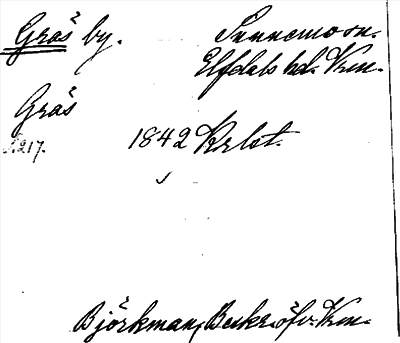 Gräs by. Sunnemo sn.
Elfdals hd. Vrm.
Gräs
S. 217. 1842 Krlst.
Björkman, Beskr. öfv. Vrm.